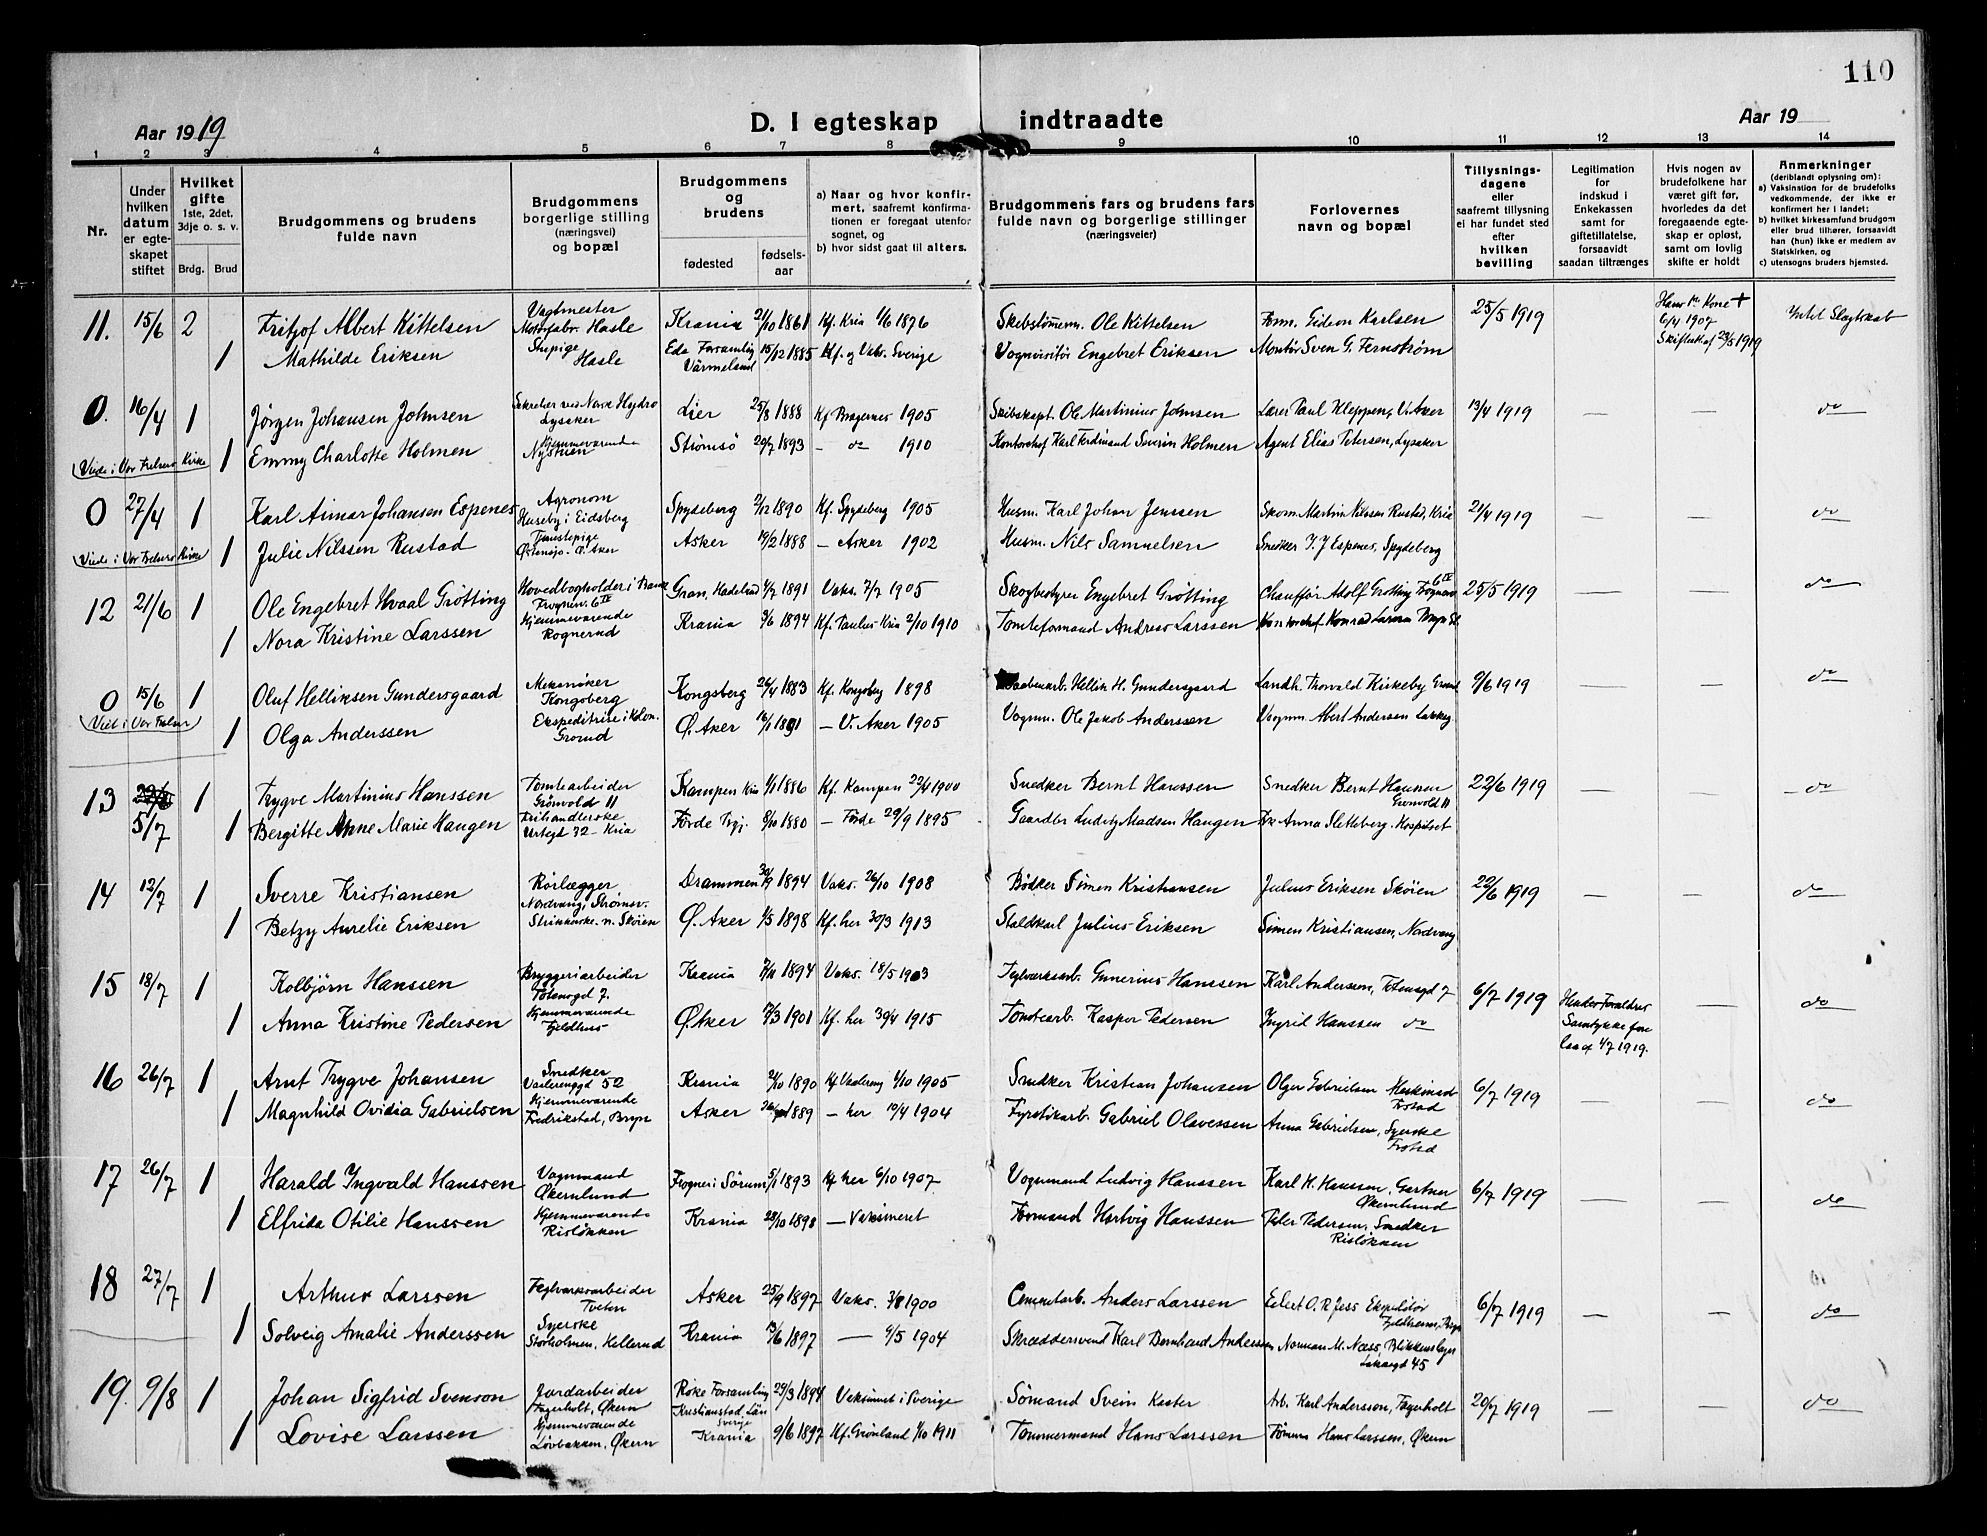 110
Aar 1919
D. I egteskap indtraadte
Aar 19
1 2 3 4 5 6 7 8 9 10 11 12 13 14
Nr.
Under hvilken datum er egteskapet stiftet
Hvilket gifte 1ste, 2det, 3dje o. s. v.
Brdg. Brud
Brudgommens og brudens fulde navn
Brudgommens borgerlige stilling (næringsvei) og bopæl
Brudgommens og brudens
fødested
fødselsaar
a) Naar og hvor konfirmert, saafremt konfirmationen er foregaat utenfor sognet, og
b) hvor sidst gaat til alters.
Brudgommens fars og brudens fars fulde navn og borgerlige stillinger (næringsveier)
Forlovernes navn og bopæl
Tillysningsdagene eller saafremt tillysning ei har fundet sted efter hvilken bevilling
Legitimation for indskud i Enkekassen samt for giftetillatelse, forsaavidt saadan tiltrænges
Hvis nogen av brudefolkene har været gift før, hvorledes da det foregaaende egteskap er opløst, samt om lovlig skifte er holdt
Anmerkninger (deriblandt oplysning om):
a) Vaksination for de brudefolks vedkommende, der ikke er konfirmert her i landet;
b) hvilket kirkesamfund brudgom eller brud tilhører, forsaavidt han (hun) ikke er medlem av Statskirken, og
c) utensogns bruders hjemsted.
11. 15/6 2 Fritjof Albert Kittelsen Vagtmester Motorfabr. Hasle Krania 21/10 1861 Kf. Kria 1/6 1876 Skibstømerm. Ole Kittelsen Form. Gideon Karlsen 25/5 1919 Hans 1ste Kone + 6/4 1907 Skifteattest 1919 Intet Slegtskab
1 Mathilde Eriksen Hasle Eda Forsamling Värmeland 15/12 1885 Kf. og Vaks. Sverige Vognvisitør Engebret Eriksen Montør Sven G. Fernstrøm
0. 16/4 1 Jørgen Johansen Johnsen Sekretær ved Norsk Hydro Lysaker Lier 25/8 1888 Kf Bragernes 1905 Skibskapt. Ole Martinius Johnsen Lærer Paul Kleppen, V. Aker 13/4 1919 — — do
(Viede i Vor Frelsers Kirke 1 Emmy Charlotte Holmen Hjemmeværende Nystuen Strømsø 20/7 1893 — do 1910 Kontorchef Karl Ferdinand Severin Holmen Agent Elias Petersen, Lysaker
0 27/4 1 Karl Aimar Johansen Espenes Agronom Huseby i Eidsberg Spydeberg 2/12 1890 Kf. Spydeberg 1905 Husm. Karl Johan Jenssen Skom. Martin Nilssen Rustad, Kria 21/4 1919 — — do
(Viede i Vor Frelsers Kirke 1 Julie Nilssen Rustad Tjenestepige Østensjø. Ø. Aker Asker 19/2 1888 — Asker 1902 Husm. Nils Samuelsen Snedker J. J Espenes, Spydeberg
12 21/6 1 Ole Engebret Hvaal Grøtting Hovedbogholder i Bank Frognerv. 6 IV Gran, Hadeland 4/7 1891 Vaks. 7/7 1905 Skogbestyrer Engebret Grøtting Chauffør Adolf Grøtting Frognerv 6 IV 25/5 1919 — — do
1 Nora Kristine Larssen Hjemmeværende Rognerud Krania 9/6 1894 Kf. Paulus Kria 2/10 1910 Tomteformand Andreas Larssen Kontorchef Konrad Larssen Bryn St.
0 15/6 1 Oluf Helliksen Gundersgaard Mekaniker Kongsberg Kongsberg 26/4 1883 Kf. Kongsberg 1898 Vaabenarb. Hellik H. Gundersgaard Landh. Thorvald Kirkeby Grorud 9/6 1919 — — do
(Viet i Vor Frelser) 1 Olga Anderssen Ekspeditrise i Kolon. Grorud Ø. Aker 16/1 1891 — V. Aker 1905 Vognm. Ole Jakob Anderssen Vognm. Albert Andersen
13 5/7 1 Trygve Martinius Hanssen Tomtearbeider Grønvold 11 Kampen Kria 1/1 1886 Kf. Kampen 22/4 1900 Snedker Bernt Hanssen Snedker Bernt Hanssen Grønvold 11 22/6 1919 — — do
1 Bergitte Anne Marie Haugen Frihandlerske Urtegd 32 - Kria Førde 8/10 1880 — Førde 29/9 1895 Gaardbr Ludvig Madsen Haugen Frk Anna Sletteberg. Hospitset
14 12/7 1 Sverre Kristiansen Rørlægger Nordvang, Strømsv. Drammen 30/9 1894 Vaks. 26/10 1908 Bødker Simen Kristiansen Julius Eriksen Skøien 22/6 1919 — — do
1 Betzy Aurelie Eriksen Strikkerske. n. Skøien Ø. Aker 1/5 1898 Kf. her 30/3 1913 Staldkarl Julius Eriksen Simen Kristiansen, Nordvang
15 18/7 1 Kolbjørn Hanssen Bryggeriarbeider Totensgd 7. Krania 7/11 1894 Vaks. 18/5 1903 Teglverksarb. Gunerius Hanssen Karl Andersen, Totensgd 7 6/7 1919 Hendes Forældres Samtykke fore laa af 4/7 1919. — do
1 Anna Kristine Pedersen Hjemmeværende Fjeldhus Ø. Aker 17/3 1901 Kf. her 30/4 1915 Tomtearb. Kasper Pedersen Ingrid Hanssen do
16 26/7 1 Arnt Trygve Johansen Snedker Vaalerenggd 52 Krania 21/10 1890 Kf Vaalereng 1/10 1905 Snedker Kristian Johansen Olger Gabrielsen Maskinarb Fstad 6/7 1919 — — do
1 Magnhild Ovidia Gabrielsen Hjemmeværende Fredrikstad, Bryn Asker 1889 — her 10/4 1904 Fyrstikarb. Gabriel Olavessen Anna Gabrielsen, Syerske Fstad
17 26/7 1 Harald Ingvald Hanssen Vognmand Økernlund Frogner i Sørum 5/1 1893 Kf her 6/10 1907 Vognmand Ludvig Hanssen Karl H. Hanssen, Gartner Økernlund 6/7 1919 — — do
1 Elfrida Otilie Hanssen Hjemmeværende Risløkken Krania 28/10 1898 — Vaksineret Formand Hartvig Hanssen Peder Pedersen, Snedker Risløkken
18 27/7 1 Arthur Larssen Teglverksarbeider Tveten Asker 25/9 1897 Vaks. 3/8 1900 Cementarb. Anders Larssen Eilert O. R. Jess Ekspeditør Fjeldheim, Bryn 6/7 1919 — — do
1 Solveig Amalie Anderssen Syerske Storholmen, Hellerud Krania 13/6 1897 — 9/5 1904 Skræddersvend Karl Bernhard Anderssen Norman M. Næss, Blikkenslager 45
19. 9/8 1 Johan Sigfrid Svenson Jordarbeider Fagerholt, Økern Röke Forsamling Kristianstad Län Sverige 29/3 1894 Vaksineret i Sverige Sømand Svein Kester Arb. Karl Anderssen, Fagerholt 20/7 1919 — — do
1 Lovise Larssen Hjemmeværende Løvbakken, Økern Krania 9/6 1897 Kf. Grønland 1/10 1911 Tømmermand Hans Larssen Tømm Hans Larssen, Økern